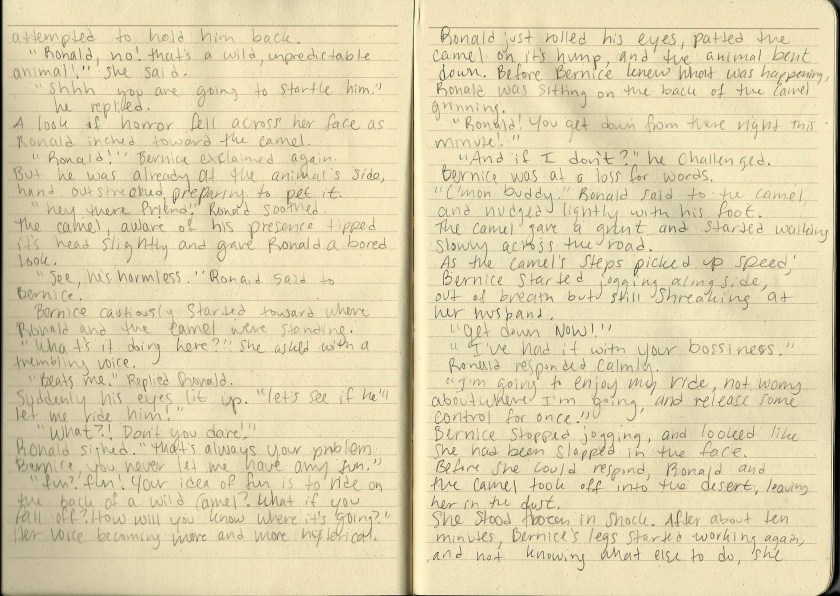 attempted to hold him back.
"Ronald, no! that's a wild, unpredictable
animal!" she said.
"Shhh you are going to startle him."
he replied.
A look of horror fell across her face as
Ronald inched toward the camel.
"Ronald!" Bernice exclaimed again.
But he was already at the animal's side,
hand outstreched preparing to pet it.
"hey there friend!" Ronald soothed.
The camel, aware of his presence tipped
it's head slightly and gave Ronald a bored
look.
"See, he's harmless." Ronald said to
Bernice.
Bernice cautiously started toward where
Ronald and the camel were standing.
"What's it doing here?" she asked with a
trembling voice.
"Beats me." Replied Ronald.
Suddenly his eyes lit up. "let's see if he'll
let me ride him!"
"What?! Don't you dare!"
Ronald sighed. "that's always your problem
Bernice you never let me have any fun."
"fun? fun! Your idea of fun is to ride on
the back of a wild camel? What if you
fall off? How will you know where it's going?"
Her voice becoming more and more hysterical.
Ronald just rolled his eyes, patted the
camel on it's hump, and the animal bent
down. Before Bernice knew what was happening,
Ronald was sitting on the back of the camel
grinning.
"Ronald! You get down from there right this
minute!"
"And if I don't?" he challenged.
Bernice was at a loss for words.
"C'mon buddy." Ronald said to the camel,
and nudged lightly with his foot.
The camel gave a grunt and started walking
slowly across the road.
As the camel's steps picked up speed,
Bernice started jogging along side,
out of breath but still shreaking at
her husband.
"Get down NOW!"
"I've had it with your bossiness."
Ronald responded calmly.
"I'm going to enjoy my ride, not worry
about where I'm going, and release some
control for once."
Bernice stopped jogging, and looked like
she had been slapped in the face.
Before she could respond, Ronald and
the camel took off into the desert, leaving
her in the dust.
She stood frozen in shock. After about ten
minutes, Bernice's legs started working again,
and not knowing what else to do, she